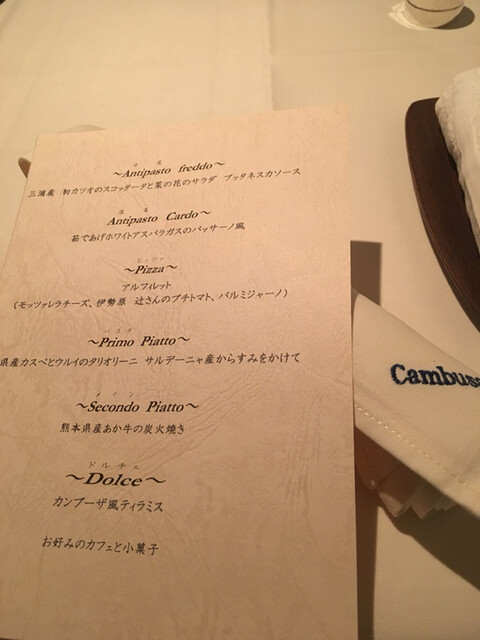 冷菜
～Antipasto freddo～
三浦産 初カツオのスコッタータと菜の花のサラダ プッタネスカソース
温菜
Antipasto Cardo～
茹であげホワイトアスパラガスのバッサーノ風
ピッツァ
～Pizza～
アルフィレット
（モッツァレラチーズ、伊勢原 辻さんのプチトマト、パルミジャーノ）
パスタ
～Primo Piatto～
県産カスベとウルイのタリオリーニ サルデーニャ産からすみをかけて
メイン
～Secondo Piatto～
熊本県産あか牛の炭火焼き
ドルチェ
～Dolce～
カンブーザ風ティラミス
お好みのカフェと小菓子
Cambus